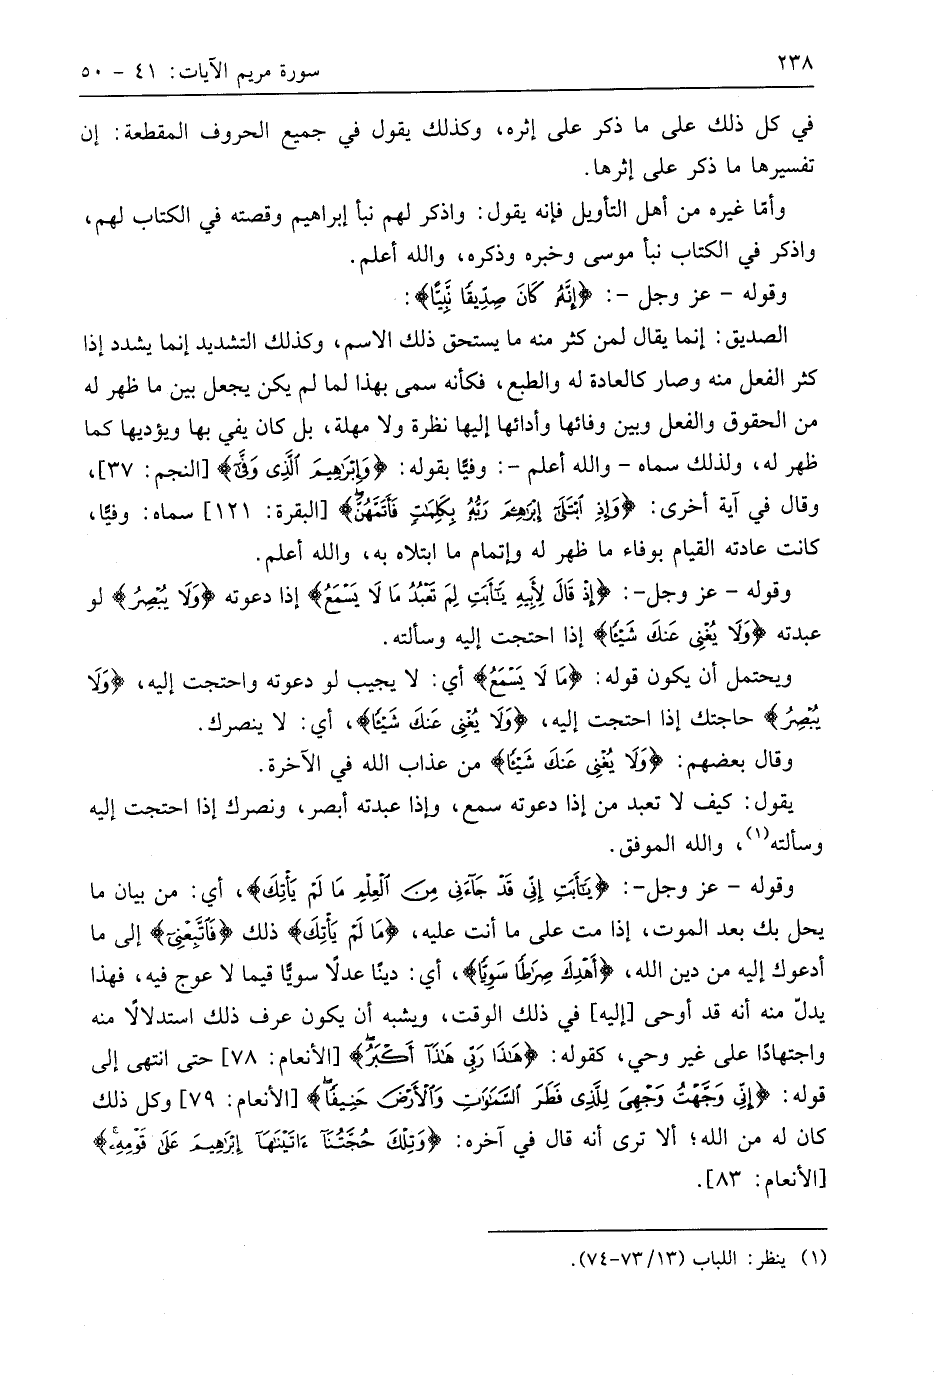 ٢٣٨
سورة مريم الآيات: ٤١ - ٥٠
في كل ذلك على ما ذكر على إثره، وكذلك يقول في جميع الحروف المقطعة: إن
تفسيرها ما ذكر على إثرها.
وأمّا غيره من أهل التأويل فإنه يقول: واذكر لهم نبأ إبراهيم وقصته في الكتاب لهم،
واذكر في الكتاب نبأ موسى وخبره وذكره، والله أعلم.
وقوله - عز وجل -: ﴿إِنَّهُ كَانَ صِدِّيقًا نَّبِيًّا﴾:
الصديق: إنما يقال لمن كثر منه ما يستحق ذلك الاسم، وكذلك التشديد إنما يشدد إذا
كثر الفعل منه وصار كالعادة له والطبع، فكأنه سمى بهذا لما لم يكن يجعل بين ما ظهر له
من الحقوق والفعل وبين وفائها وأدائها إليها نظرة ولا مهلة، بل كان يفي بها ويؤديها كما
ظهر له، ولذلك سماه - والله أعلم -: وفيًّا بقوله: ﴿وَإِبْرَٰهِيمَ ٱلَّذِى وَفَّىٰٓ﴾ [النجم: ٣٧]،
وقال في آية أخرى: ﴿وَإِذِ ٱبْتَلَىٰٓ إِبْرَٰهِـۧمَ رَبُّهُۥ بِكَلِمَٰتٍ فَأَتَمَّهُنَّۖ﴾ [البقرة: ١٢١] سماه: وفيًّا،
كانت عادته القيام بوفاء ما ظهر له وإتمام ما ابتلاه به، والله أعلم.
وقوله - عز وجل-: ﴿إِذْ قَالَ لِأَبِيهِ يَٰٓأَبَتِ لِمَ تَعْبُدُ مَا لَا يَسْمَعُ﴾ إذا دعوته ﴿وَلَا يُبْصِرُ﴾ لو
عبدته ﴿وَلَا يُغْنِى عَنكَ شَيْـًٔا﴾ إذا احتجت إليه وسألته.
ويحتمل أن يكون قوله: ﴿مَا لَا يَسْمَعُ﴾ أي: لا يجيب لو دعوته واحتجت إليه، ﴿وَلَا
يُبْصِرُ﴾ حاجتك إذا احتجت إليه، ﴿وَلَا يُغْنِى عَنكَ شَيْـًٔا﴾، أي: لا ينصرك.
وقال بعضهم: ﴿وَلَا يُغْنِى عَنكَ شَيْـًٔا﴾ من عذاب الله في الآخرة.
يقول: كيف لا تعبد من إذا دعوته سمع، وإذا عبدته أبصر، ونصرك إذا احتجت إليه
وسألته(١)، والله الموفق.
وقوله - عز وجل-: ﴿يَٰٓأَبَتِ إِنِّى قَدْ جَآءَنِى مِنَ ٱلْعِلْمِ مَا لَمْ يَأْتِكَ﴾، أي: من بيان ما
يحل بك بعد الموت، إذا مت على ما أنت عليه، ﴿مَا لَمْ يَأْتِكَ﴾ ذلك ﴿فَٱتَّبِعْنِىٓ﴾ إلى ما
أدعوك إليه من دين الله، ﴿أَهْدِكَ صِرَٰطًا سَوِيًّا﴾، أي: دينًا عدلًا سويًّا قيما لا عوج فيه، فهذا
يدلّ منه أنه قد أوحى [إليه] في ذلك الوقت، ويشبه أن يكون عرف ذلك استدلالًا منه
واجتهادًا على غير وحي، كقوله: ﴿هَٰذَا رَبِّى هَٰذَآ أَكْبَرُۖ﴾ [الأنعام: ٧٨] حتى انتهى إلى
قوله: ﴿إِنِّى وَجَّهْتُ وَجْهِىَ لِلَّذِى فَطَرَ ٱلسَّمَٰوَٰتِ وَٱلْأَرْضَ حَنِيفًاۖ﴾ [الأنعام: ٧٩] وكل ذلك
كان له من الله؛ ألا ترى أنه قال في آخره: ﴿وَتِلْكَ حُجَّتُنَآ ءَاتَيْنَٰهَآ إِبْرَٰهِيمَ عَلَىٰ قَوْمِهِۦۚ﴾
[الأنعام: ٨٣].
(١) ينظر: اللباب (١٣/ ٧٣-٧٤).